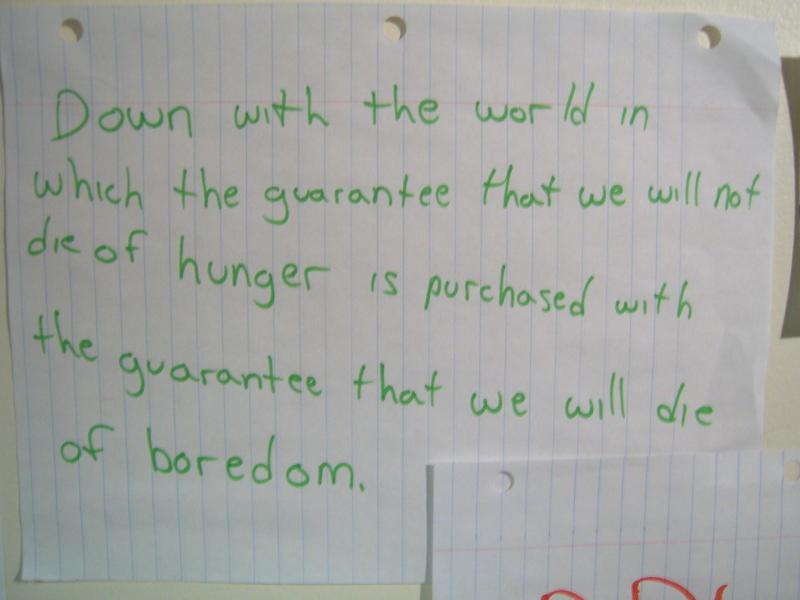 Down with the world in
which the guarantee that we will not
die of hunger is purchased with
the guarantee that we will die
of boredom.